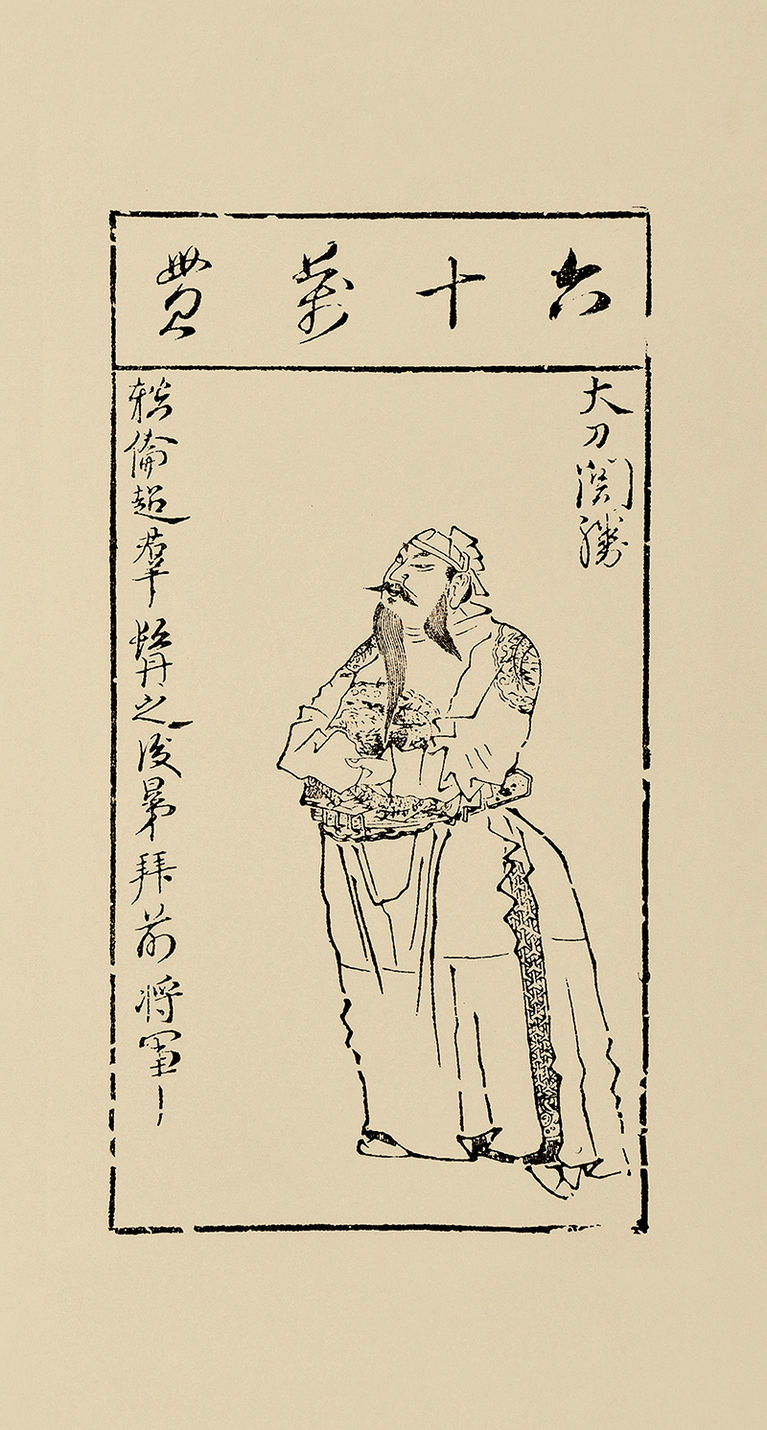 六十萬貫
大刀關勝
軼倫超羣髯之後晜拜前將軍